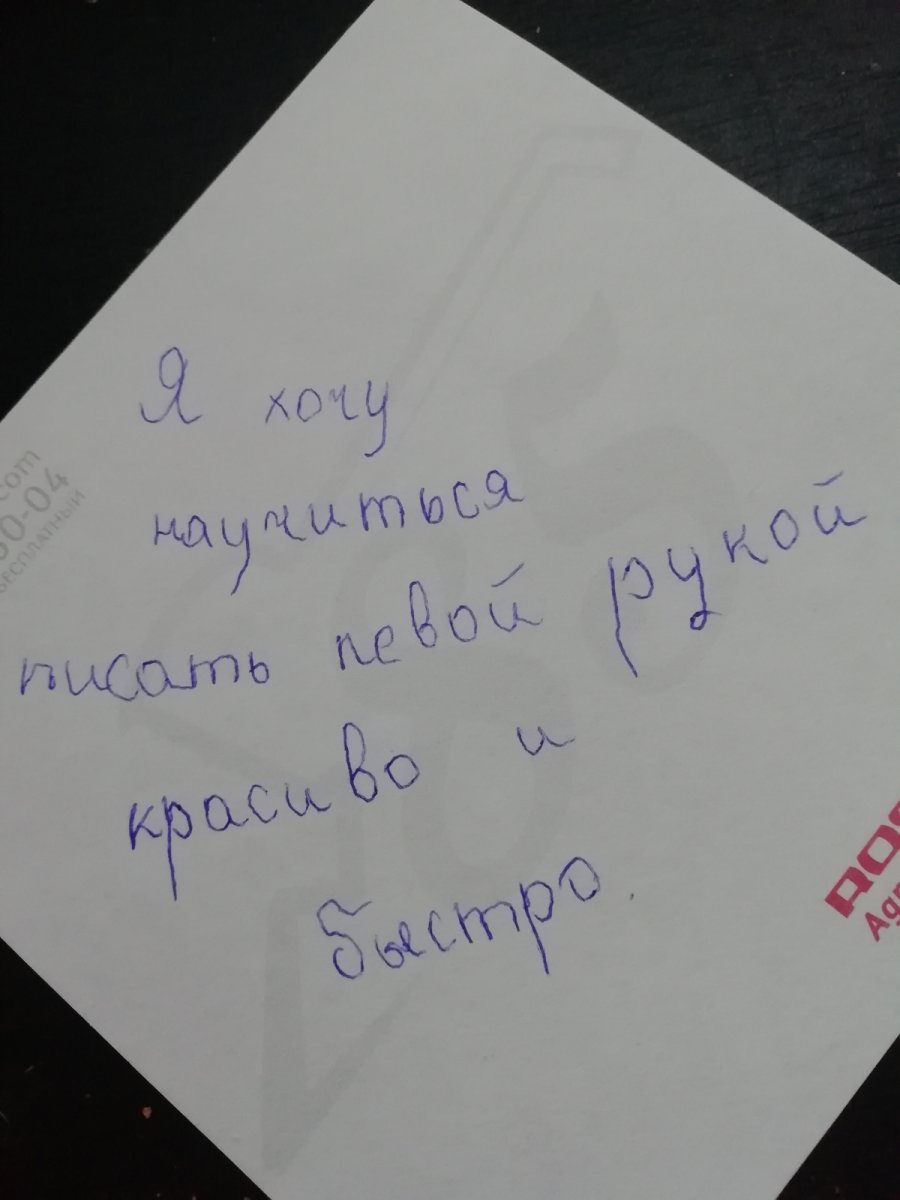 Я хочу
научиться
писать левой рукой
красиво и
быстро.
com
0-04
БЕСПЛАТНЫЙ